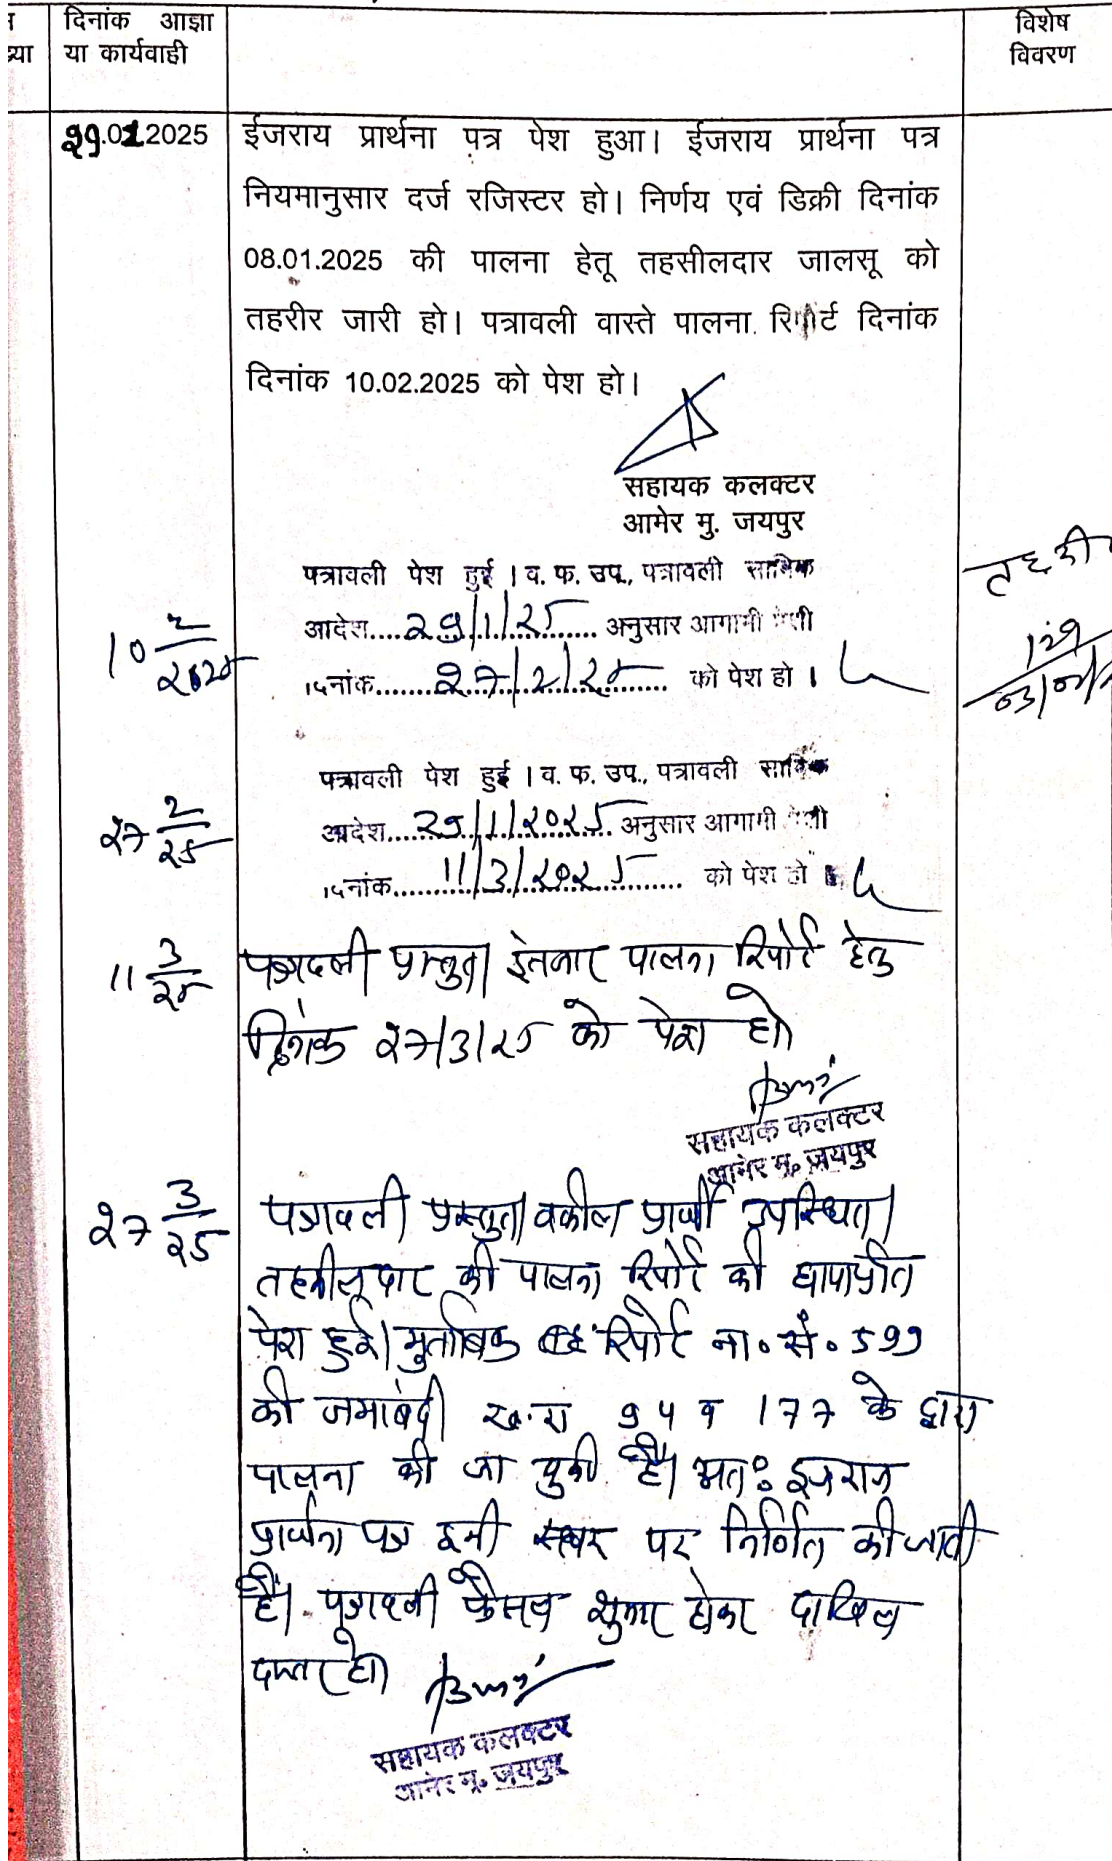 दिनांक आज्ञा
या कार्यवाही
विशेष
विवरण
29.01.2025
ईजराय प्रार्थना पत्र पेश हुआ। ईजराय प्रार्थना पत्र
नियमानुसार दर्ज रजिस्टर हो। निर्णय एवं डिक्री दिनांक
08.01.2025 की पालना हेतू तहसीलदार जालसू को
तहरीर जारी हो। पत्रावली वास्ते पालना रिपोर्ट दिनांक
दिनांक 10.02.2025 को पेश हो।
सहायक कलक्टर
आमेर मु. जयपुर
10 2/2025
पत्रावली पेश हुई । व. फ. उप., पत्रावली साबिक
आदेश....29/1/25.... अनुसार आगामी पेशी
दिनांक........27/2/25........ को पेश हो ।
129
27 2/25
पत्रावली पेश हुई । व. फ. उप., पत्रावली साबिक
आदेश...29/1/2025 अनुसार आगामी पेशी
दिनांक......11/3/2025...... को पेश हो
11 3/25
पत्रावली प्रस्तुत। इंतजार पालना रिपोर्ट हेतु
दिनांक 27/3/25 को पेश हो।
सहायक कलक्टर
आमेर मु. जयपुर
27 3/25
पत्रावली प्रस्तुत। वकील प्रार्थी उपस्थित।
तहसीलदार की पालना रिपोर्ट की छायाप्रति
पेश हुई। मुताबिक रिपोर्ट ना. सं. 599
की जमाबंदी 94 व 177 के द्वारा
पालना की जा चुकी है। अतः इजराय
प्रार्थना पत्र इसी स्तर पर निर्णित की जाती
है। पत्रावली फैसल शुमार होकर दाखिल
दफ्तर हो।
सहायक कलक्टर
आमेर मु. जयपुर